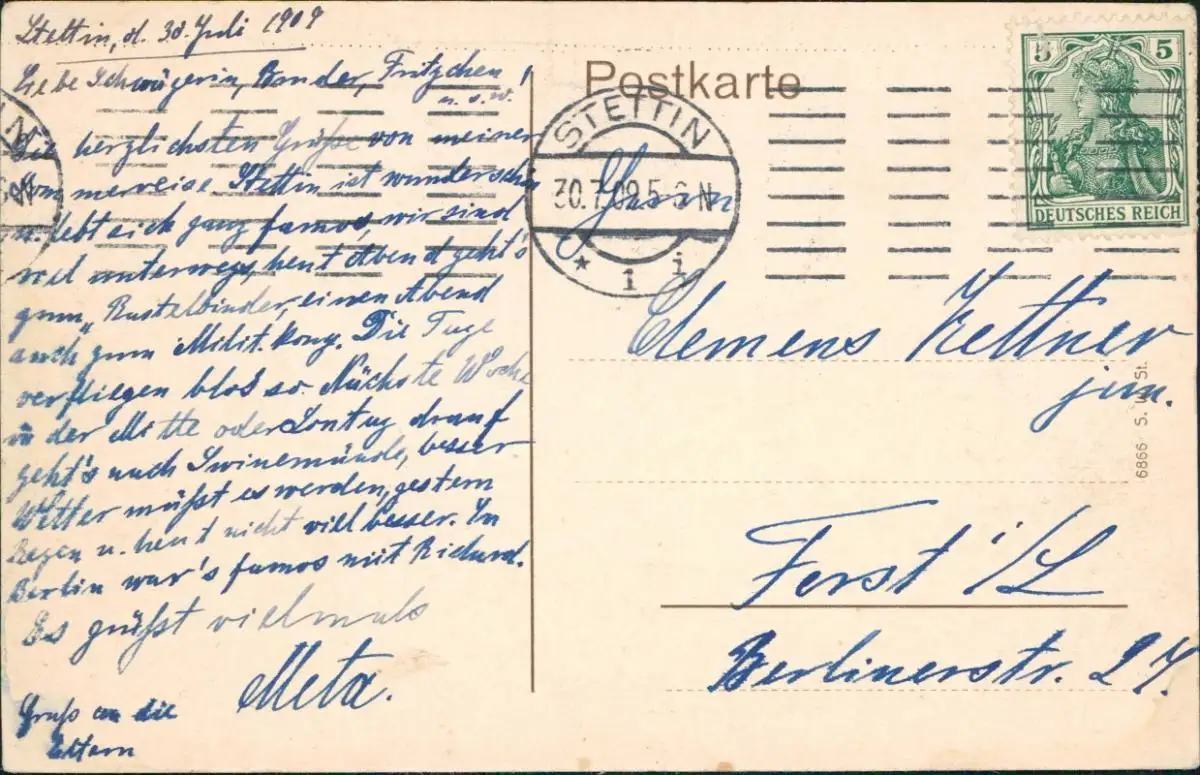 Stettin, d. 30. Juli 1909
Liebe Schwägerin, Bruder, Fritzchen!
u. s. w.
Die herzlichsten Grüße von meiner
Sommerreise Stettin ist wunderschön
u. lebt sich ganz famos, wir sind
viel unterwegs, heut Abend geht's
zum „Rastelbinder, einen Abend
auch zum Milit. Konz. Die Tage
verfliegen blos so. Nächste Woche
in der Mitte oder Sontag drauf
geht's nach Swinemünde, besser
Wetter müßt es werden, gestern
Regen u. heut nicht viel besser. In
Berlin war's famos mit Richard.
Es grüßt vielmals
Meta.
Gruß an die
Eltern
Postkarte
STETTIN
30.7.09.5-6N
* 1 i
5 5
DEUTSCHES REICH
Herrn
Clemens Kettner
jun.
Forst i/L
Berlinerstr. 27.
6866 S. W. St.